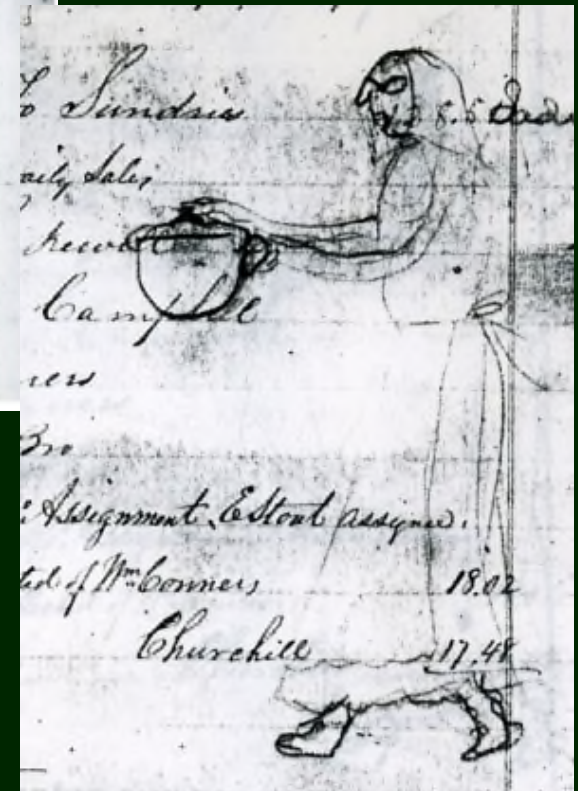 To Sundries
aily Sales
Campbell
ners
Bro
Assignment. E Stout assignee.
ted of Wm Conners 18.02
Churchill 17.48